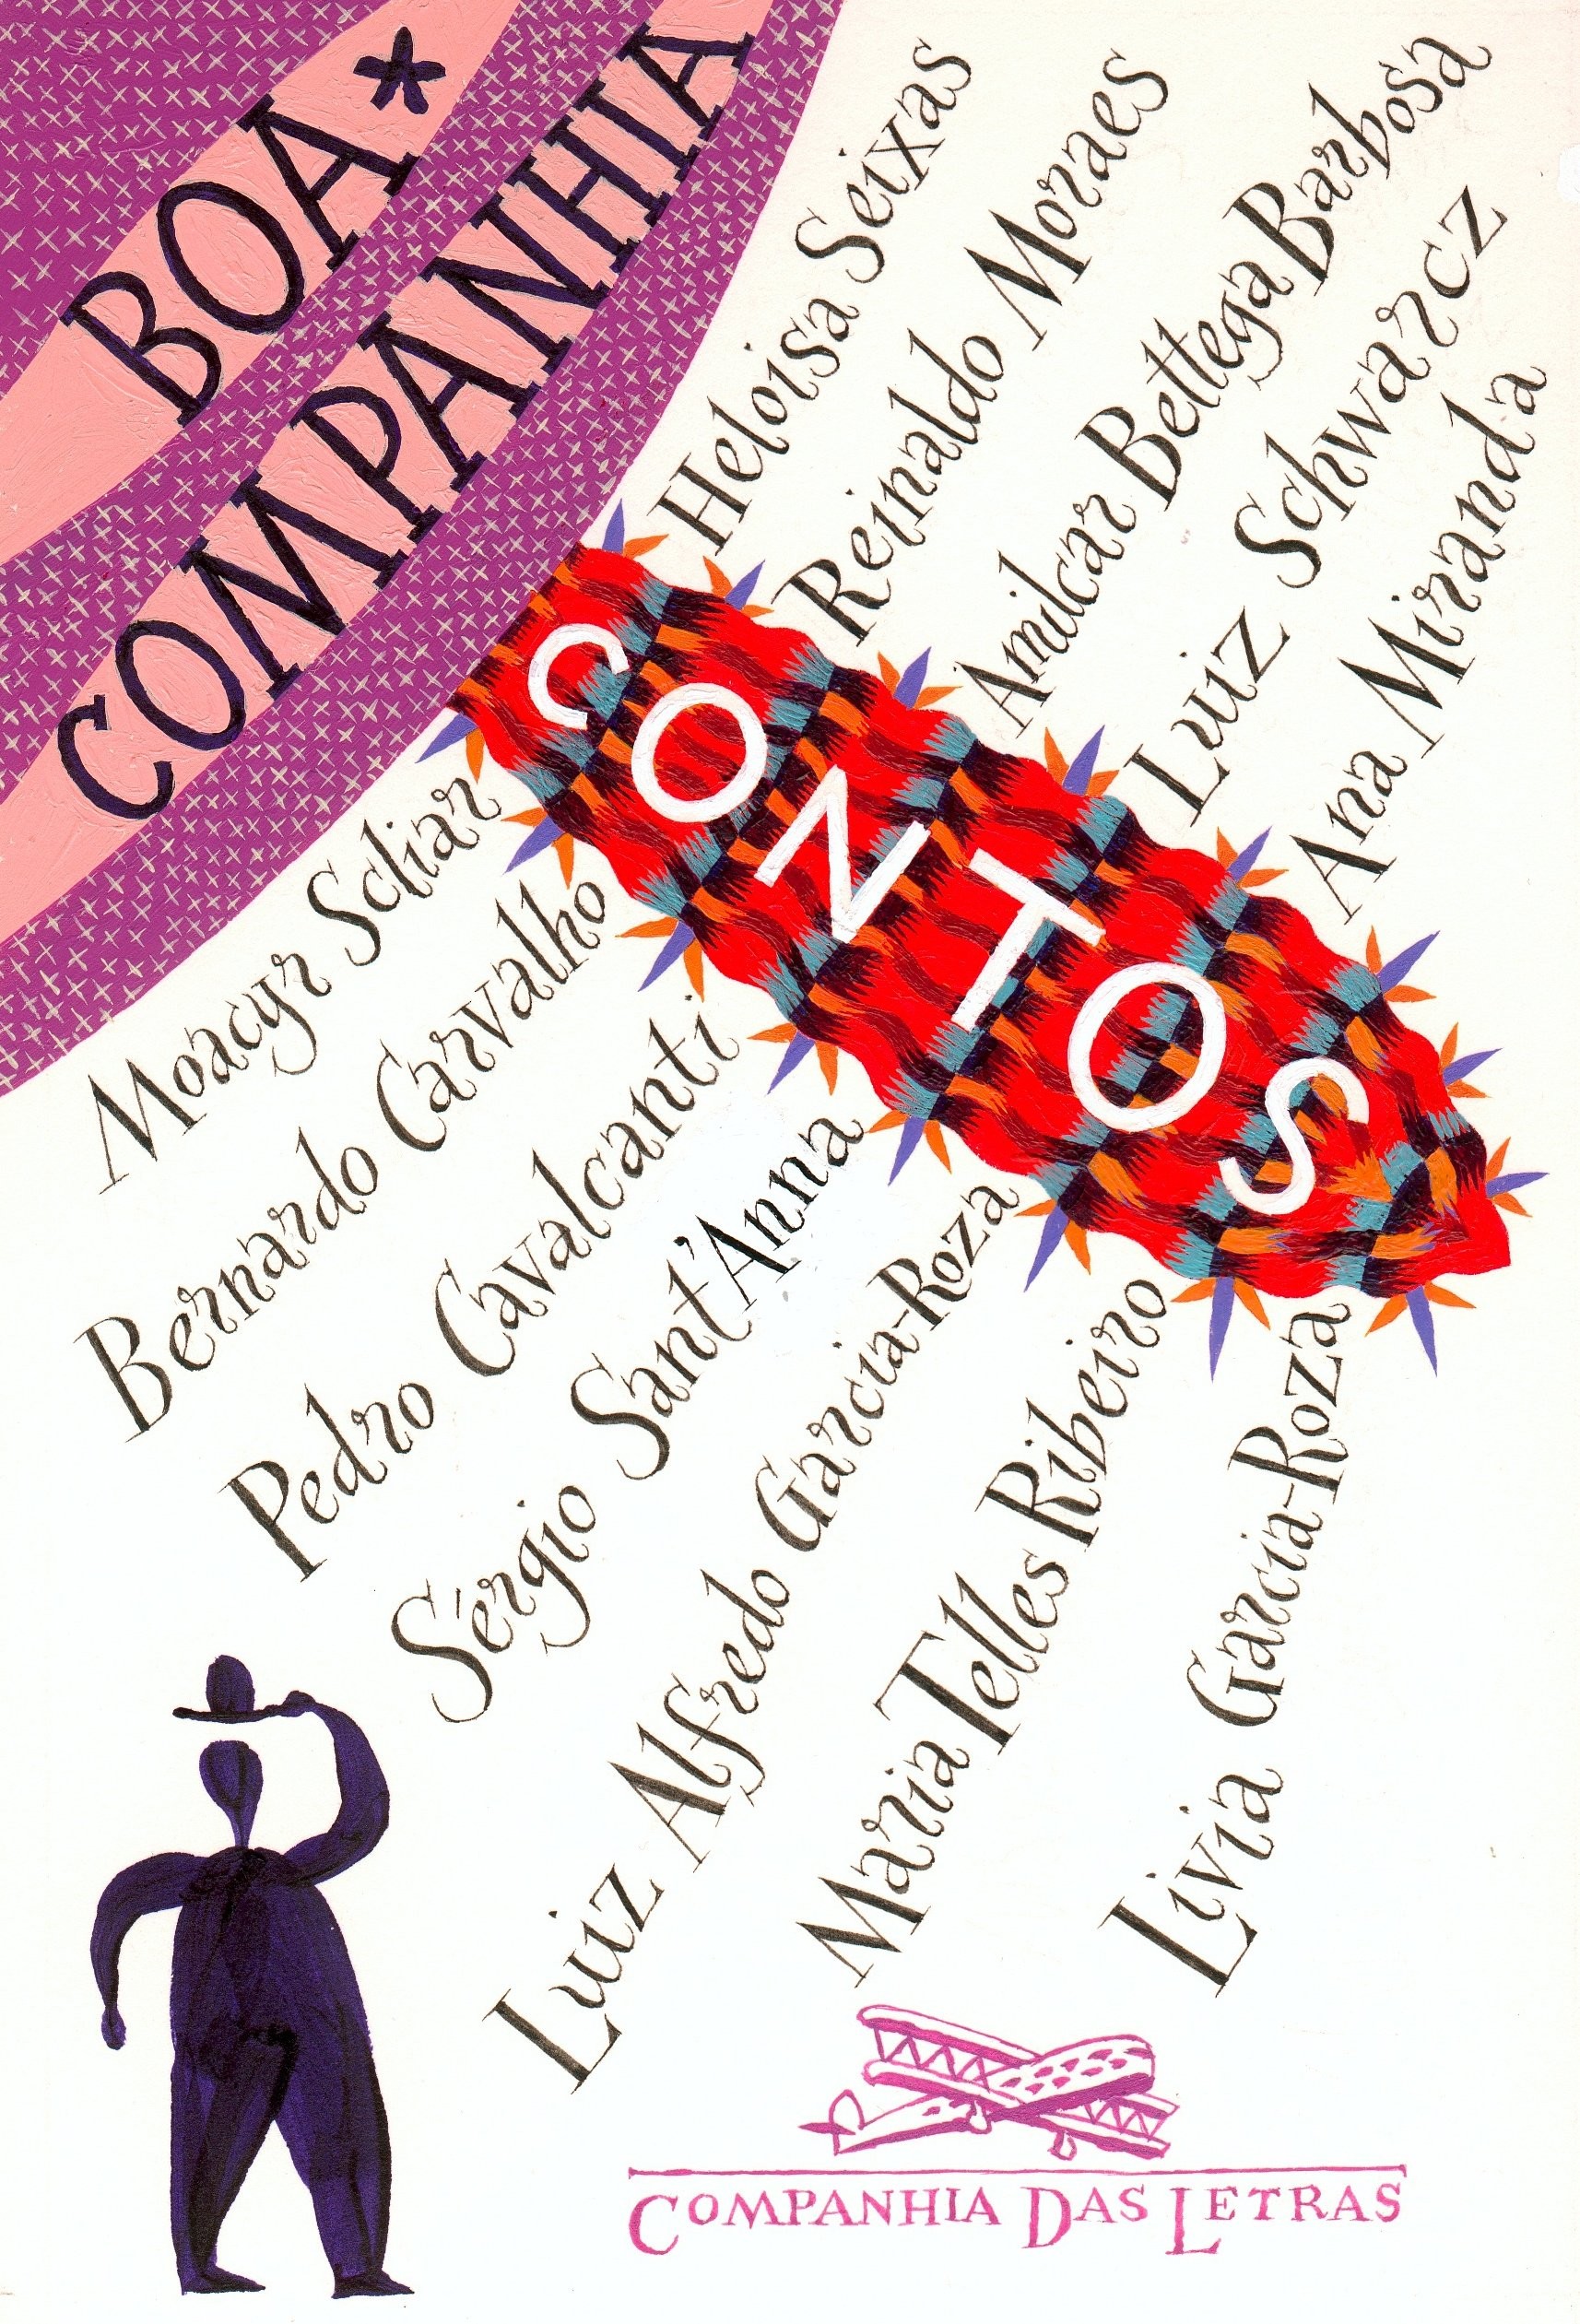 BOA*
COMPANHIA
CONTOS
Heloisa Seixas
Reinaldo Moraes
Amilcar Bettega Barbosa
Luiz Schwarcz
Ana Miranda
Moacyr Scliar
Bernardo Carvalho
Pedro Cavalcanti
Sérgio Sant'Anna
Luiz Alfredo Garcia-Roza
Maria Telles Ribeiro
Livia Garcia-Roza
COMPANHIA DAS LETRAS